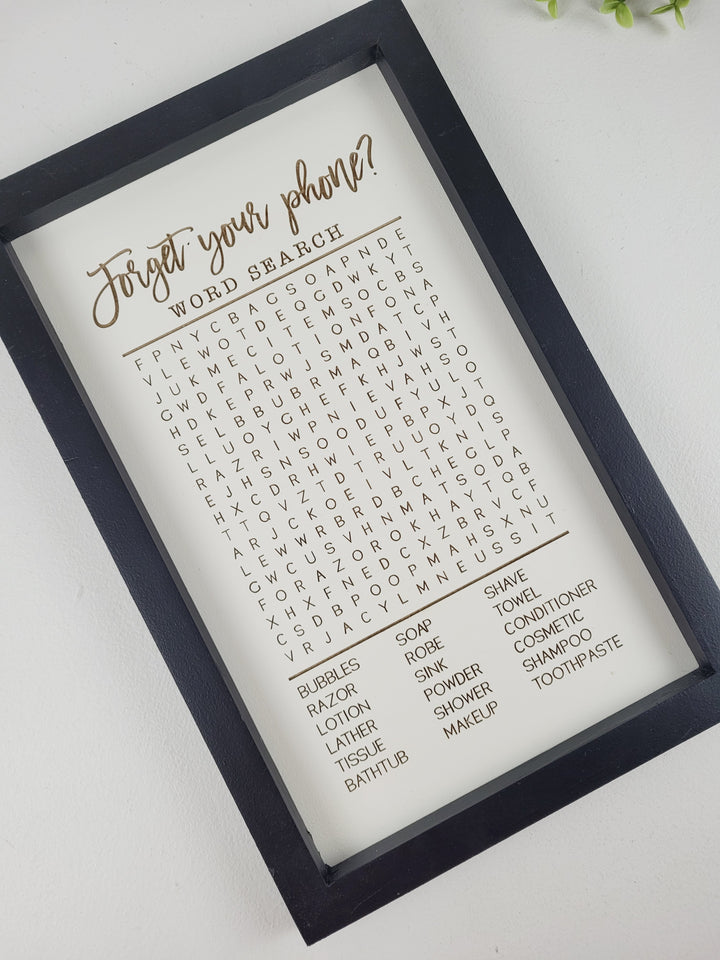 Forget your phone?
WORD SEARCH
F P N Y C B A G S O A P N D E
V L E W O T D E Q G D W K Y T
J U K M E C I T E M S O C B S
G W D F A L O T I O N F O N A
H D K E P R W J S M D A T C P
S E L B B U B R M A Q B I V H
L L U O Y G H E F K H J W S T
R A Z R I W P N I E V A H S O
E J H S N S O O D U F Y U L O
H X C D R H W I E P B P X J T
T T Q V Z T D T R U U O Y D Q
A R J C K O E I V L T K N I S
L E W W R B R D B C H E G L P
G W C U S V H N M A T S O D A
F O R A Z O R O K H A Y T Q B
X H X F N E D C X Z B R V C F
C S D B P O O P M A H S X N U
V R J A C Y L M N E U S S I T
BUBBLES
RAZOR
LOTION
LATHER
TISSUE
BATHTUB
SOAP
ROBE
SINK
POWDER
SHOWER
MAKEUP
SHAVE
TOWEL
CONDITIONER
COSMETIC
SHAMPOO
TOOTHPASTE